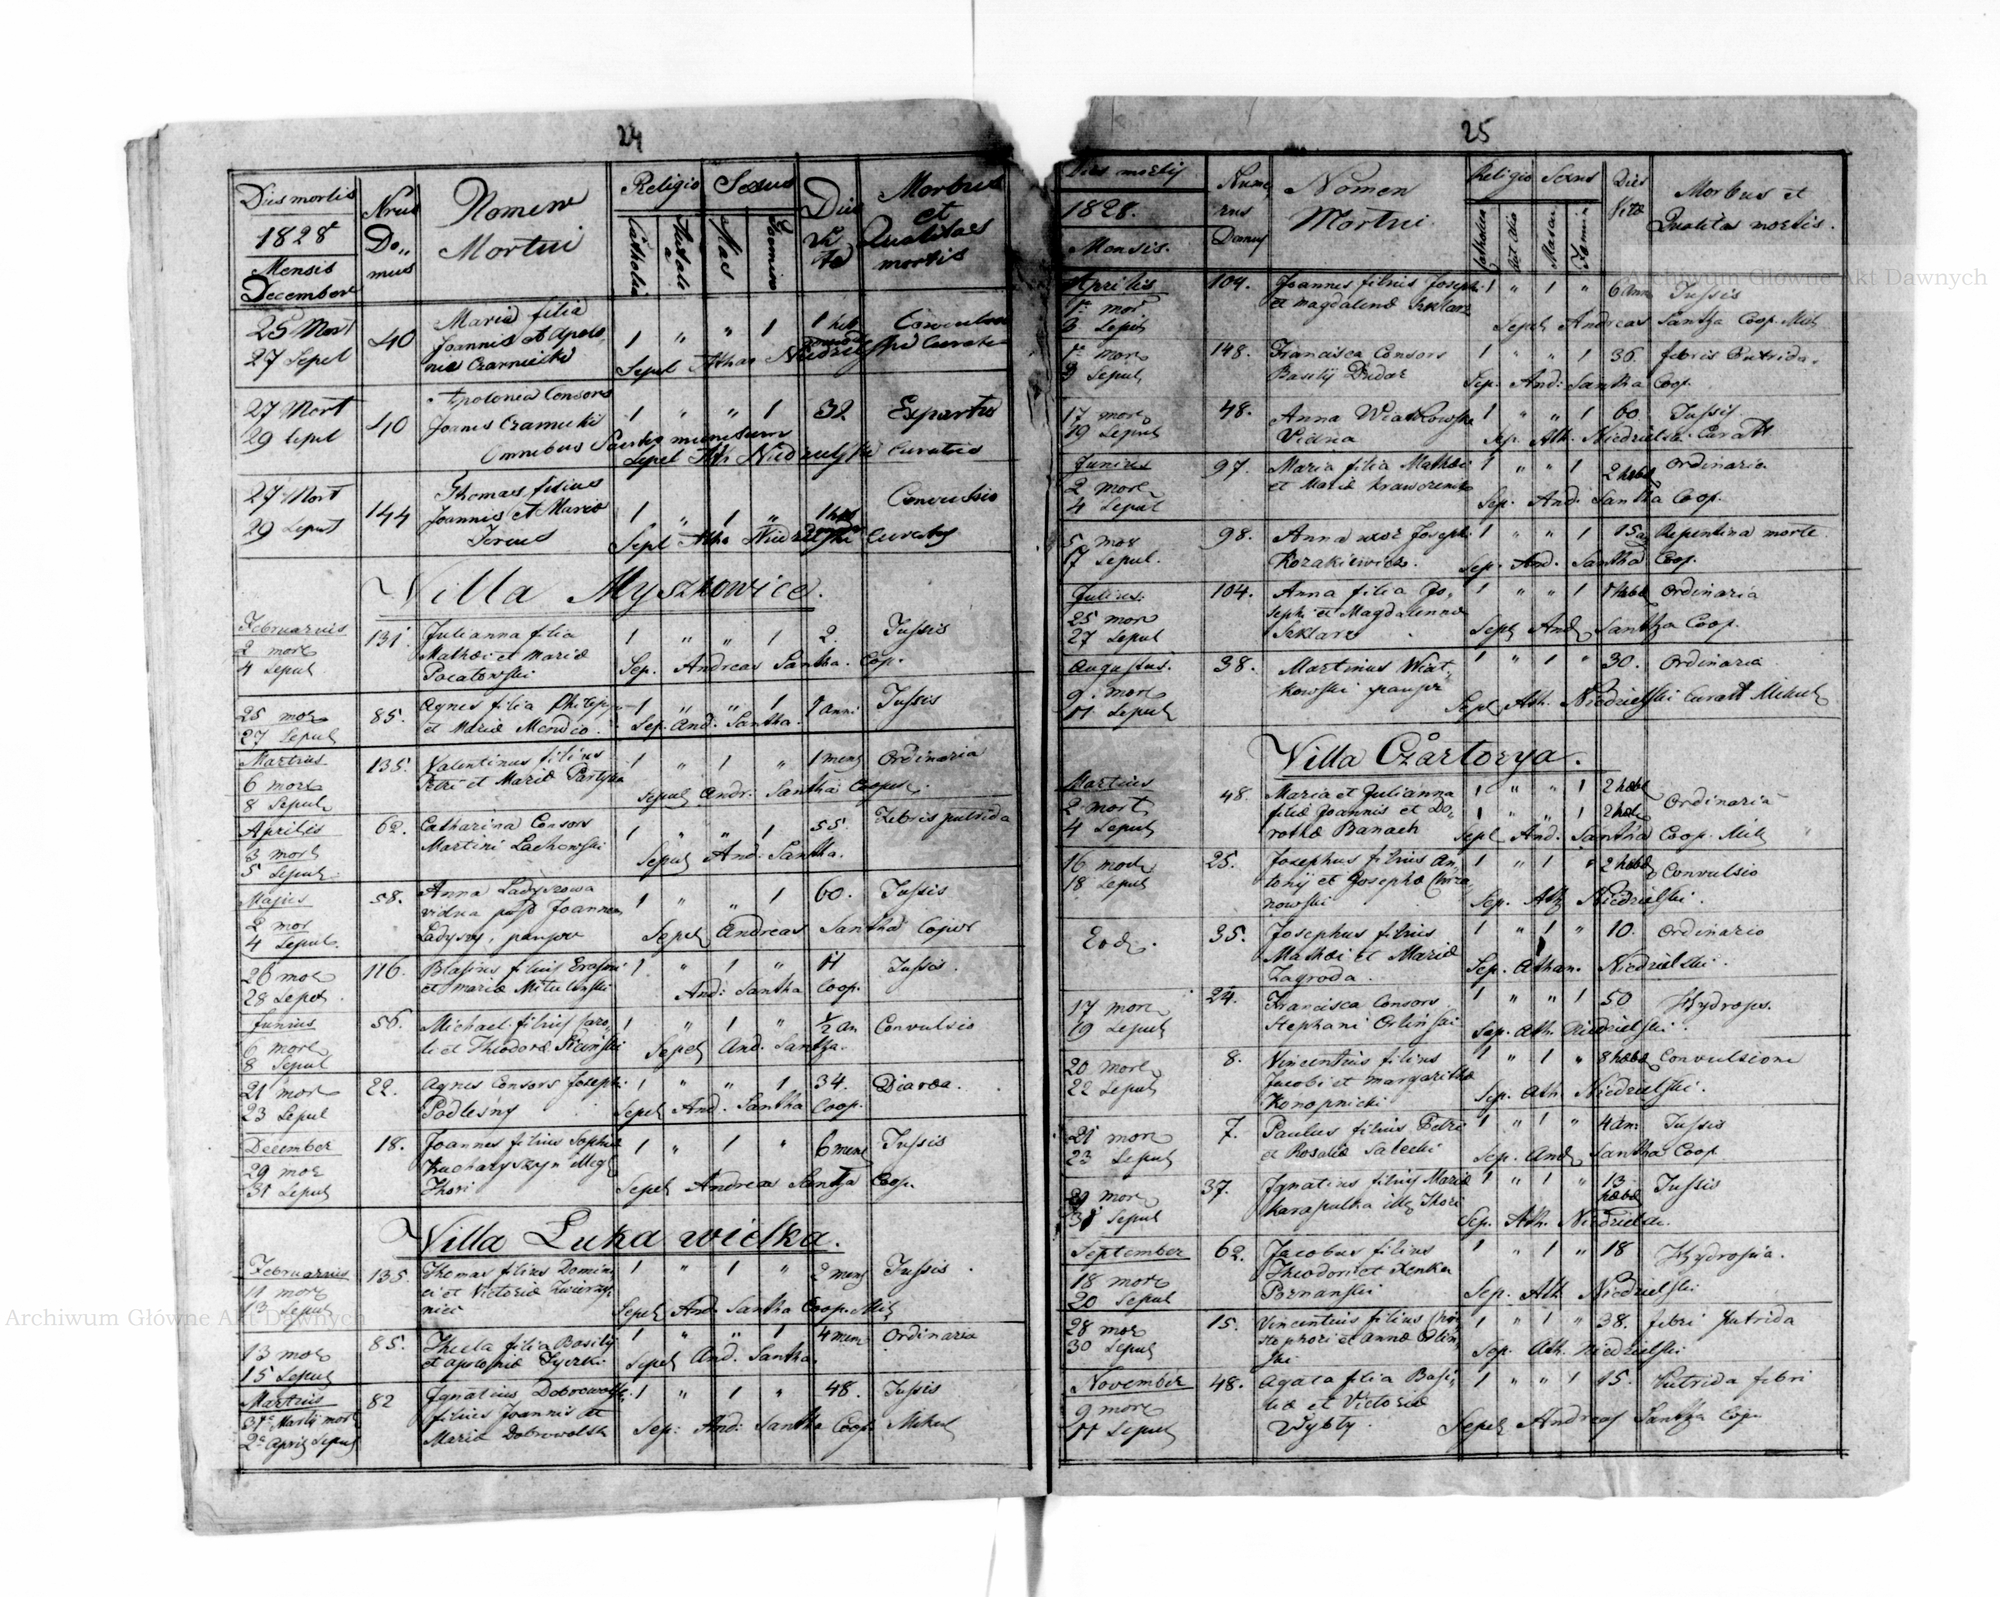 24
Dies mortis
1828
Mensis
December
Nrus
Do,,
mus
Nomen
Mortui
Religio
Catholica
Sexus
Mas
Foemina
Dies
Vi
tae
Morbus
et
Qualitas
mortis
25 Mort
27 Sepel
40
Maria filia
Joannis et Apolo,
nia Czarniecki
1 " " 1
Sepel Athas Niedzielski Curatus
27 Mort
29 Sepul
40
Apolonia Consors
Joanis Czarniecki
Omnibus munitum
1 " " 1 32
Sepel Ath Niedzielski Curatus
27 Mort
29 Sepult
144
Thomas filius
Joannis et Maria
1 " 1 "
Convulsio
Sepel Atha Niedzielski Curatus
Villa Myszkowice.
Februarius
2 mort
4 Sepul
131.
Julianna filia
Mathaei et Maria
1 " " 1 2. Tussis
Sep. Andreas Santha. Cop.
25 mor
27 Sepul
85.
Agnes filia Philippi
et Maria Mendio.
1 " " 1 Tussis
Sep. And. Santha.
Martius
6 mort
8 Sepul
135.
Valentinus filius
Petri et Maria Partyka
1 " 1 " 1 mens Ordinaria
Sepul Andr. Santha Cooper.
Aprilis
3 mort
5 Sepul
62.
Catharina Consors
Martini Lachowski
1 " " 1 55. Febris putrida
Sepul And. Santha.
Majus
2 mor
4 Sepul.
58.
Anna Ladyszowa
vidua post Joannem
Ladyszy, pauper
1 " " 1 60. Tussis
Sepel Andreas Santha Coper
26 mor
28 Sepel
116.
Blasius filius Erasmi
et Maria
1. " 1 " 11 Tussis.
And. Santha Coop.
Junius
6 mort
8 Sepul
56.
Michael filius Caro,
li et Theodora
1 " 1 " 1/2 an Convulsio
Sepel And. Santha.
21 mor
23 Sepul
22.
Agnes Consors Joseph
Podlesny
1 " " 1 34. Diarea.
Sepel And. Santha Coop.
December
29 mor
31 Sepul
18.
Joannes filius Sophia
Kucharyszyn illegi
thori
1 " 1 " 6 mens Tussis
Sepel Andreas Santha Coop.
Villa Luka wielka.
Februarius
11 mort
13 Sepul
135.
Thomas filius Domini
ci et Victoria Zwierzy
niec
1 " 1 " 2 mens Tussis.
Sepel And. Santha Coop. Mik
13 mor
15 Sepul
85.
Thecla filia Basilii
et Apolonia
1 " " 1 4 mens Ordinaria
Sepel And. Santha.
Martius
31a Martii mort
2a April Sepul
82
Ignatius Dobrowolski
filius Joannis et
Maria Dobrowolska
1 " 1 " 48. Tussis
Sep. And. Santha Coop. Mikul
25
Dies mortis
1828.
Mensis.
Nume,
rus
Domus
Nomen
Mortui.
Religio
Catholica
Sexus
Mascu
Femin
Dies
Vitae
Morbus et
Qualitas mortis.
Aprilis
1a mor
3 Sepul
104.
Joannes filius Joseph
et Magdalena Szklarz
1 " 1 " 6 ann Tussis
Sepel Andreas Santha Coop. Mik
1a mor
3 Sepul
148.
Francisca Consors
Basilij Dudar
1 " " 1 36. febris Putrida.
Sep. And. Santha Coop.
17 mor
19 Sepul
48.
Anna Wiatkowska
Vidua
1 " " 1 60 Tussis
Sep. Ath. Niedzielski. Curatt
Junius
2 mort
4 Sepul
97.
Maria filia Mathaei
et Maria
1 " " 1 2 hebd Ordinaria
Sep. And. Santha Coop.
5 mor
17 Sepul.
98.
Anna uxor Joseph
Kozakiewicz.
1 " " 1 Repentina morte
Sep. And. Santha Coop.
Julius
25 mor
27 Sepul
104.
Anna filia Jo,
seph et Magdalenna
Szklarz
1 " " 1 1 hebd Ordinaria
Sepel And. Santha Coop.
Augustus.
9. mor
11. Sepul
38.
Martinus Wiat,
kowski pauper
1 " 1 " 30. Ordinaria
Sepel Ath. Niedzielski Curatt Mikul
Villa Czartorya.
Martius
2 mort
4 Sepul
48.
Maria et Julianna
filiae Joannis et Do,
rothea Banach
1 " " 1 2 hebd
1 " " 1 2 hebd
Ordinaria
Sepel And. Santha Coop. Mik
16 mort
18 Sepul
25.
Josephus filius An,
tonij et Josepha Chrza
nowski
1 " 1 " 2 hebd Convulsio
Sep. Ath Niedzielski.
Eod.
35.
Josephus filius
Mathaei et Maria
Zagroda.
1 " 1 " 10. Ordinario
Sep. Athan. Niedzielski.
17 mor
19 Sepul
24.
Francisca Consors
Stephani Orlinski
1 " " 1 50 Hydrops.
Sep. Ath. Niedzielski.
20 mort
22 Sepul
8.
Vincentius filius
Jacobi et Margaritha
Konopnicki
1 " 1 " 8 hebd Convulsione
Sep. Ath Niedzielski.
21 mor
23 Sepul
7.
Paulus filius Petri
et Rosalia Salecki
1 " 1 " 4 an. Tussis
Sep. And. Santha Coop
29 mor
31 Sepul
37.
Ignatius filius Maria
Karapulka illeg Thori
1 " 1 " 13 hebd Tussis
Sep. Ath. Niedzielski.
September
18 mor
20 Sepul
62.
Jacobus filius
Theodori et Xenka
Poznanski
1 " 1 " 18 Hydropia.
Sep. Ath. Niedzielski
28 mor
30 Sepul
15.
Vincentius filius Chri,
stophori et Anna Orlin,
ski
1 " 1 " 38. febri putrida
Sep. Ath. Niedzielski
November
9 mor
11 Sepul
48.
Agata filia Basi,
lii et Victoria
Wybty.
1 " " 1 15. Putrida febri
Sepel Andreas Santha Cop.
Archiwum Główne Akt Dawnych
Archiwum Główne Akt Dawnych